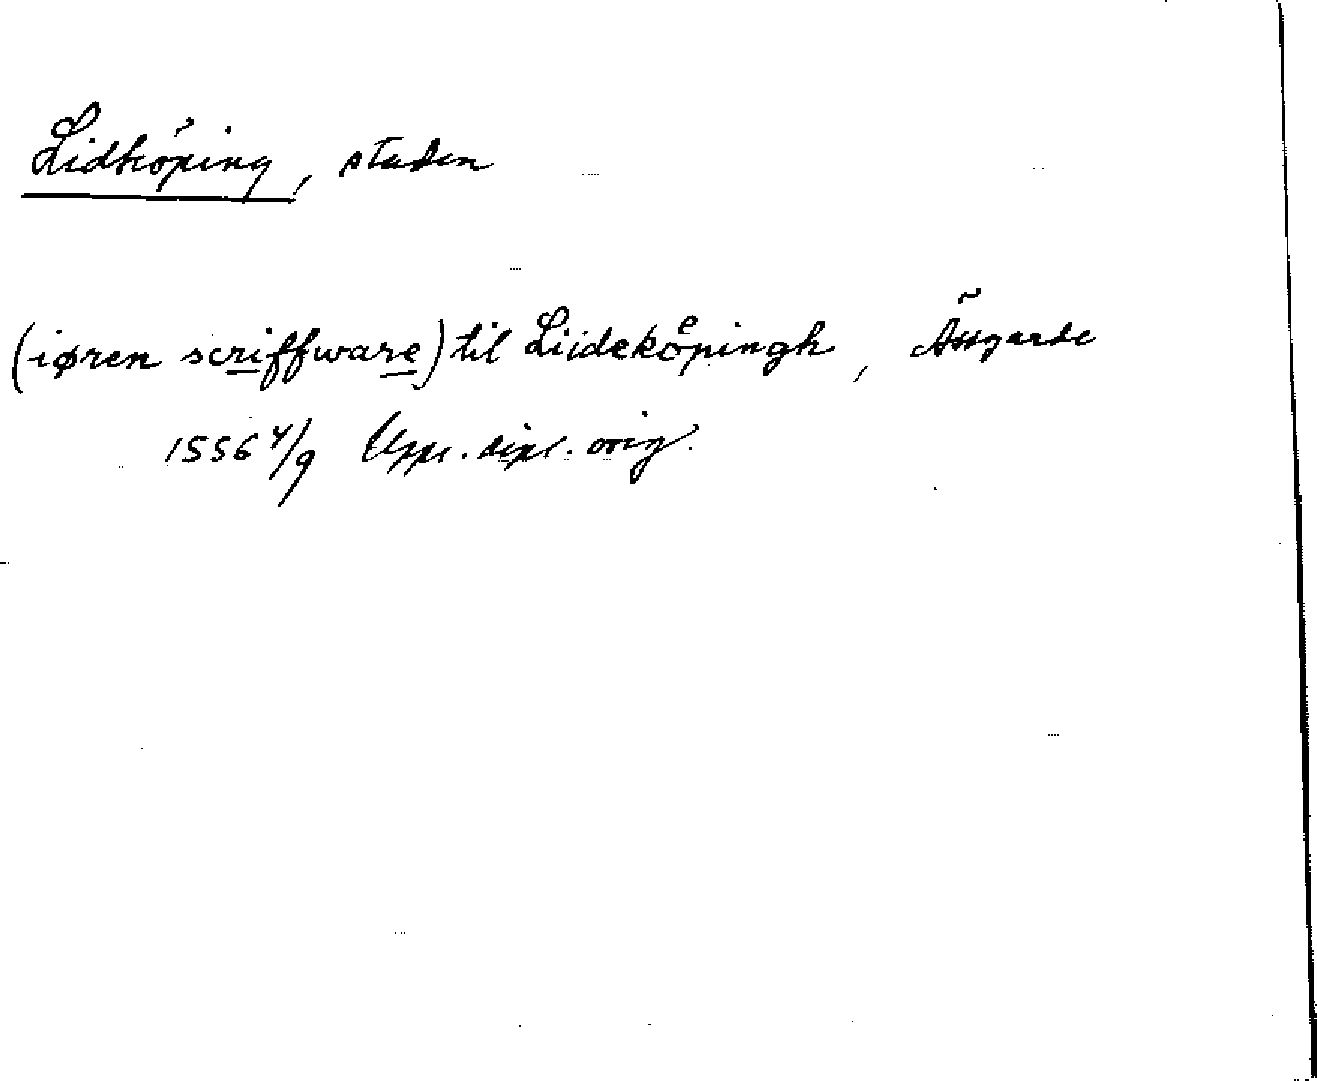 Lidköping, staden
(iøren scriffware) til Liideköpingh,
1556 4/9 Upps. dipl. orig.